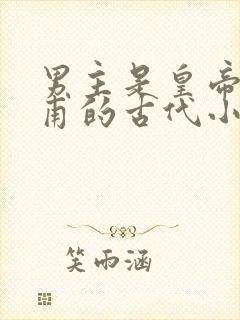 男主是皇帝
甫的古代小
笑雨涵